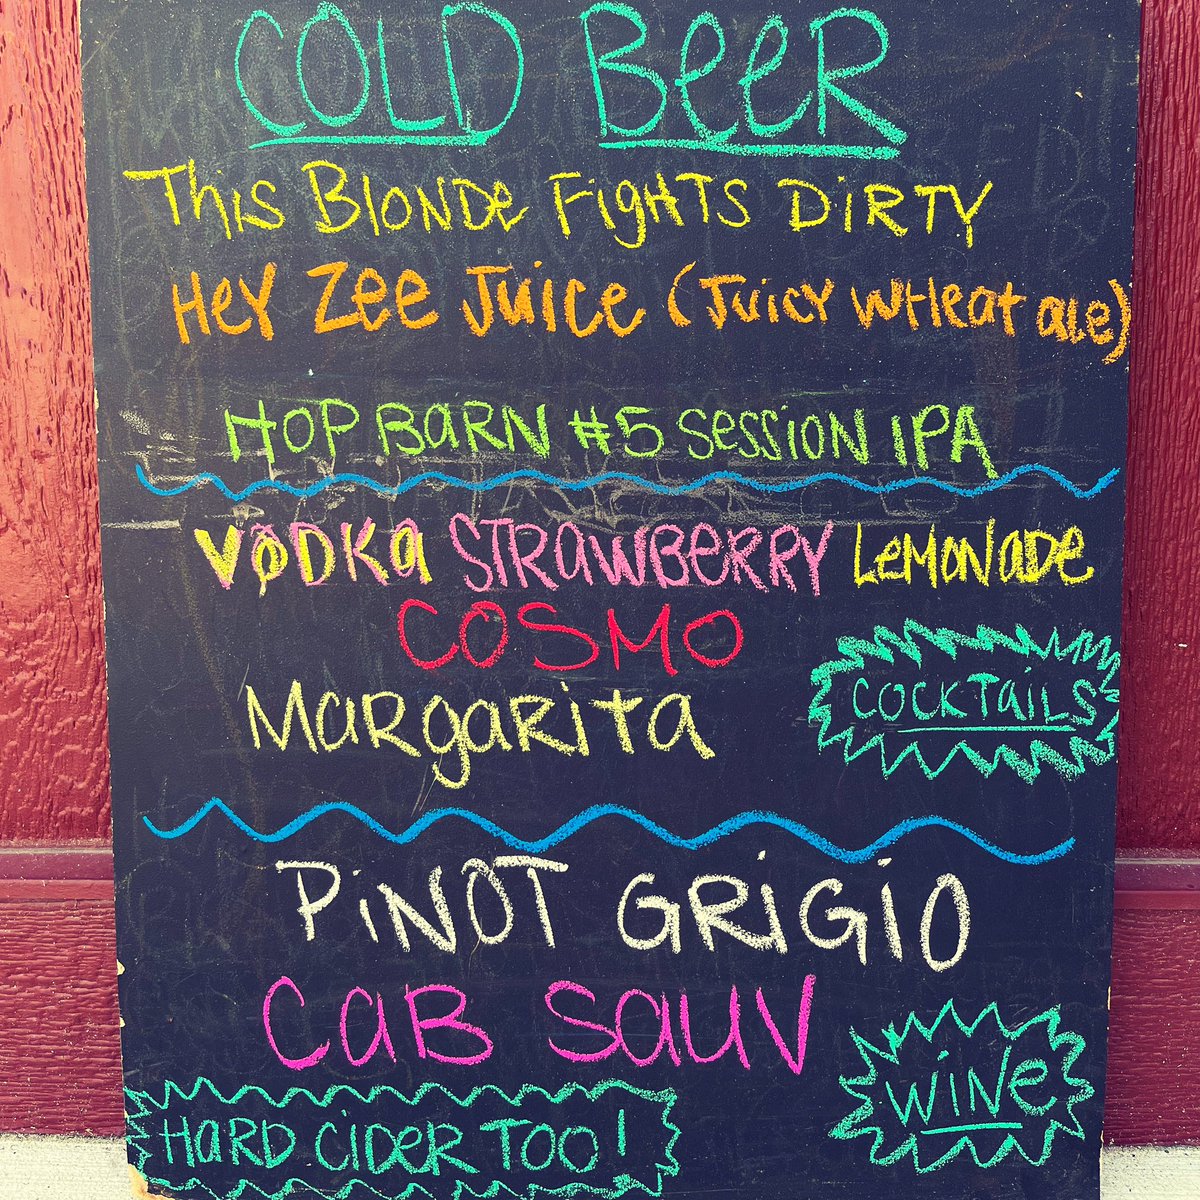 COLD BEER
THIS BLONDE FIGHTS DIRTY
HEY ZEE JUICE (JUICY WHEAT ALE)
HOP BARN #5 SESSION IPA
VODKA STRAWBERRY LEMONADE
COSMO
MARGARITA
COCKTAILS
PINOT GRIGIO
CAB SAUV
WINE
HARD CIDER TOO!